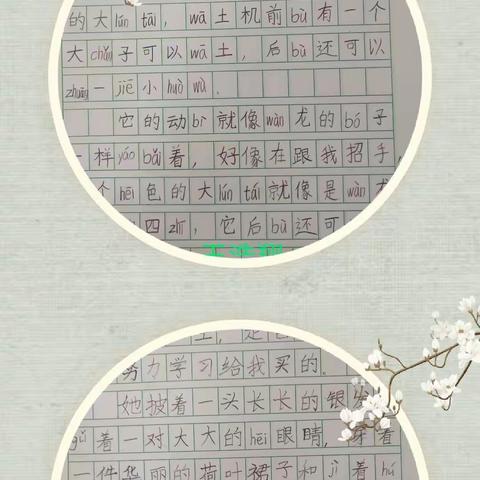 的大lún tāi，wā土机前bù有一个
大chǎn子可以wā土，后bù还可以
zhuāng一jiē小huò wù．
它的动bì就像wàn龙的bó子
一样yáo bǎi着，好像在跟我招手，
个hēi色的大lún tái就像是wàn龙
四zhī，它后bù还可
努力学习给我买的。
她披着一头长长的银发
gǔ着一对大大的hēi眼睛，穿着
一件华丽的荷叶裙子和jì着hú